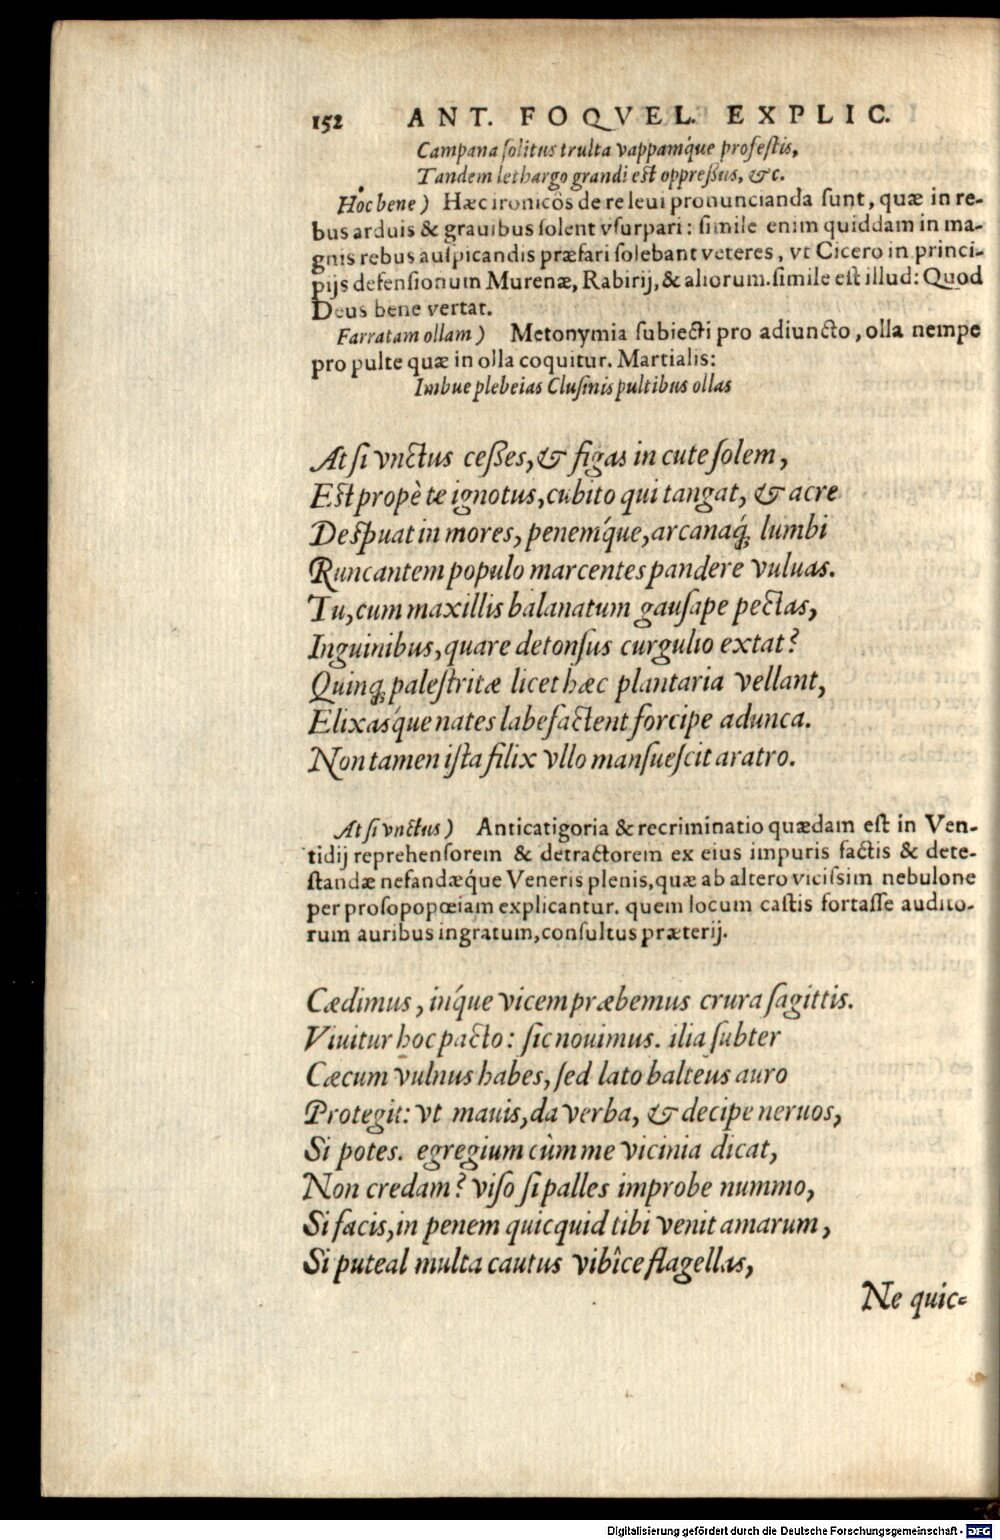 152 ANT. FOQVEL. EXPLIC.
Campana ſolitus trulta vappamq́ue profeſtis,
Tandem lethargo grandi eſt oppreßus, &c.
Hoc bene) Hæc ironicôs de re leui pronuncianda ſunt, quæ in re-
bus arduis & grauibus ſolent vſurpari: ſimile enim quiddam in ma-
gnis rebus auſpicandis præfari ſolebant veteres, vt Cicero in princi-
pijs defenſionum Murenæ, Rabirij, & aliorum. ſimile eſt illud: Quod
Deus bene vertat.
Farratam ollam) Metonymia ſubiecti pro adiuncto, olla nempe
pro pulte quæ in olla coquitur. Martialis:
Imbue plebeias Cluſinis pultibus ollas
At ſi vnctus ceßes, & figas in cute ſolem,
Eſt propè te ignotus, cubito qui tangat, & acre
Deſpuat in mores, penemq́ue, arcanaq́; lumbi
Runcantem populo marcentes pandere vuluas.
Tu, cum maxillis balanatum gauſape pectas,
Inguinibus, quare detonſus curgulio extat?
Quinq; paleſtritæ licet hæc plantaria vellant,
Elixasq́ue nates labefactent forcipe adunca.
Non tamen iſta filix vllo manſueſcit aratro.
At ſi vnctus) Anticatigoria & recriminatio quædam eſt in Ven-
tidij reprehenſorem & detractorem ex eius impuris factis & dete-
ſtandæ nefandæque Veneris plenis, quæ ab altero viciſsim nebulone
per proſopopœiam explicantur. quem locum caſtis fortaſſe audito-
rum auribus ingratum, conſultus præterij.
Cædimus, inq́ue vicem præbemus crura ſagittis.
Viuitur hoc pacto: ſic nouimus. ilia ſubter
Cæcum vulnus habes, ſed lato balteus auro
Protegit: vt mauis, da verba, & decipe neruos,
Si potes. egregium cùm me vicinia dicat,
Non credam? viſo ſi palles improbe nummo,
Si facis, in penem quicquid tibi venit amarum,
Si puteal multa cautus vibîce flagellas,
Ne quic-
Digitalisierung gefördert durch die Deutsche Forschungsgemeinschaft - DFG